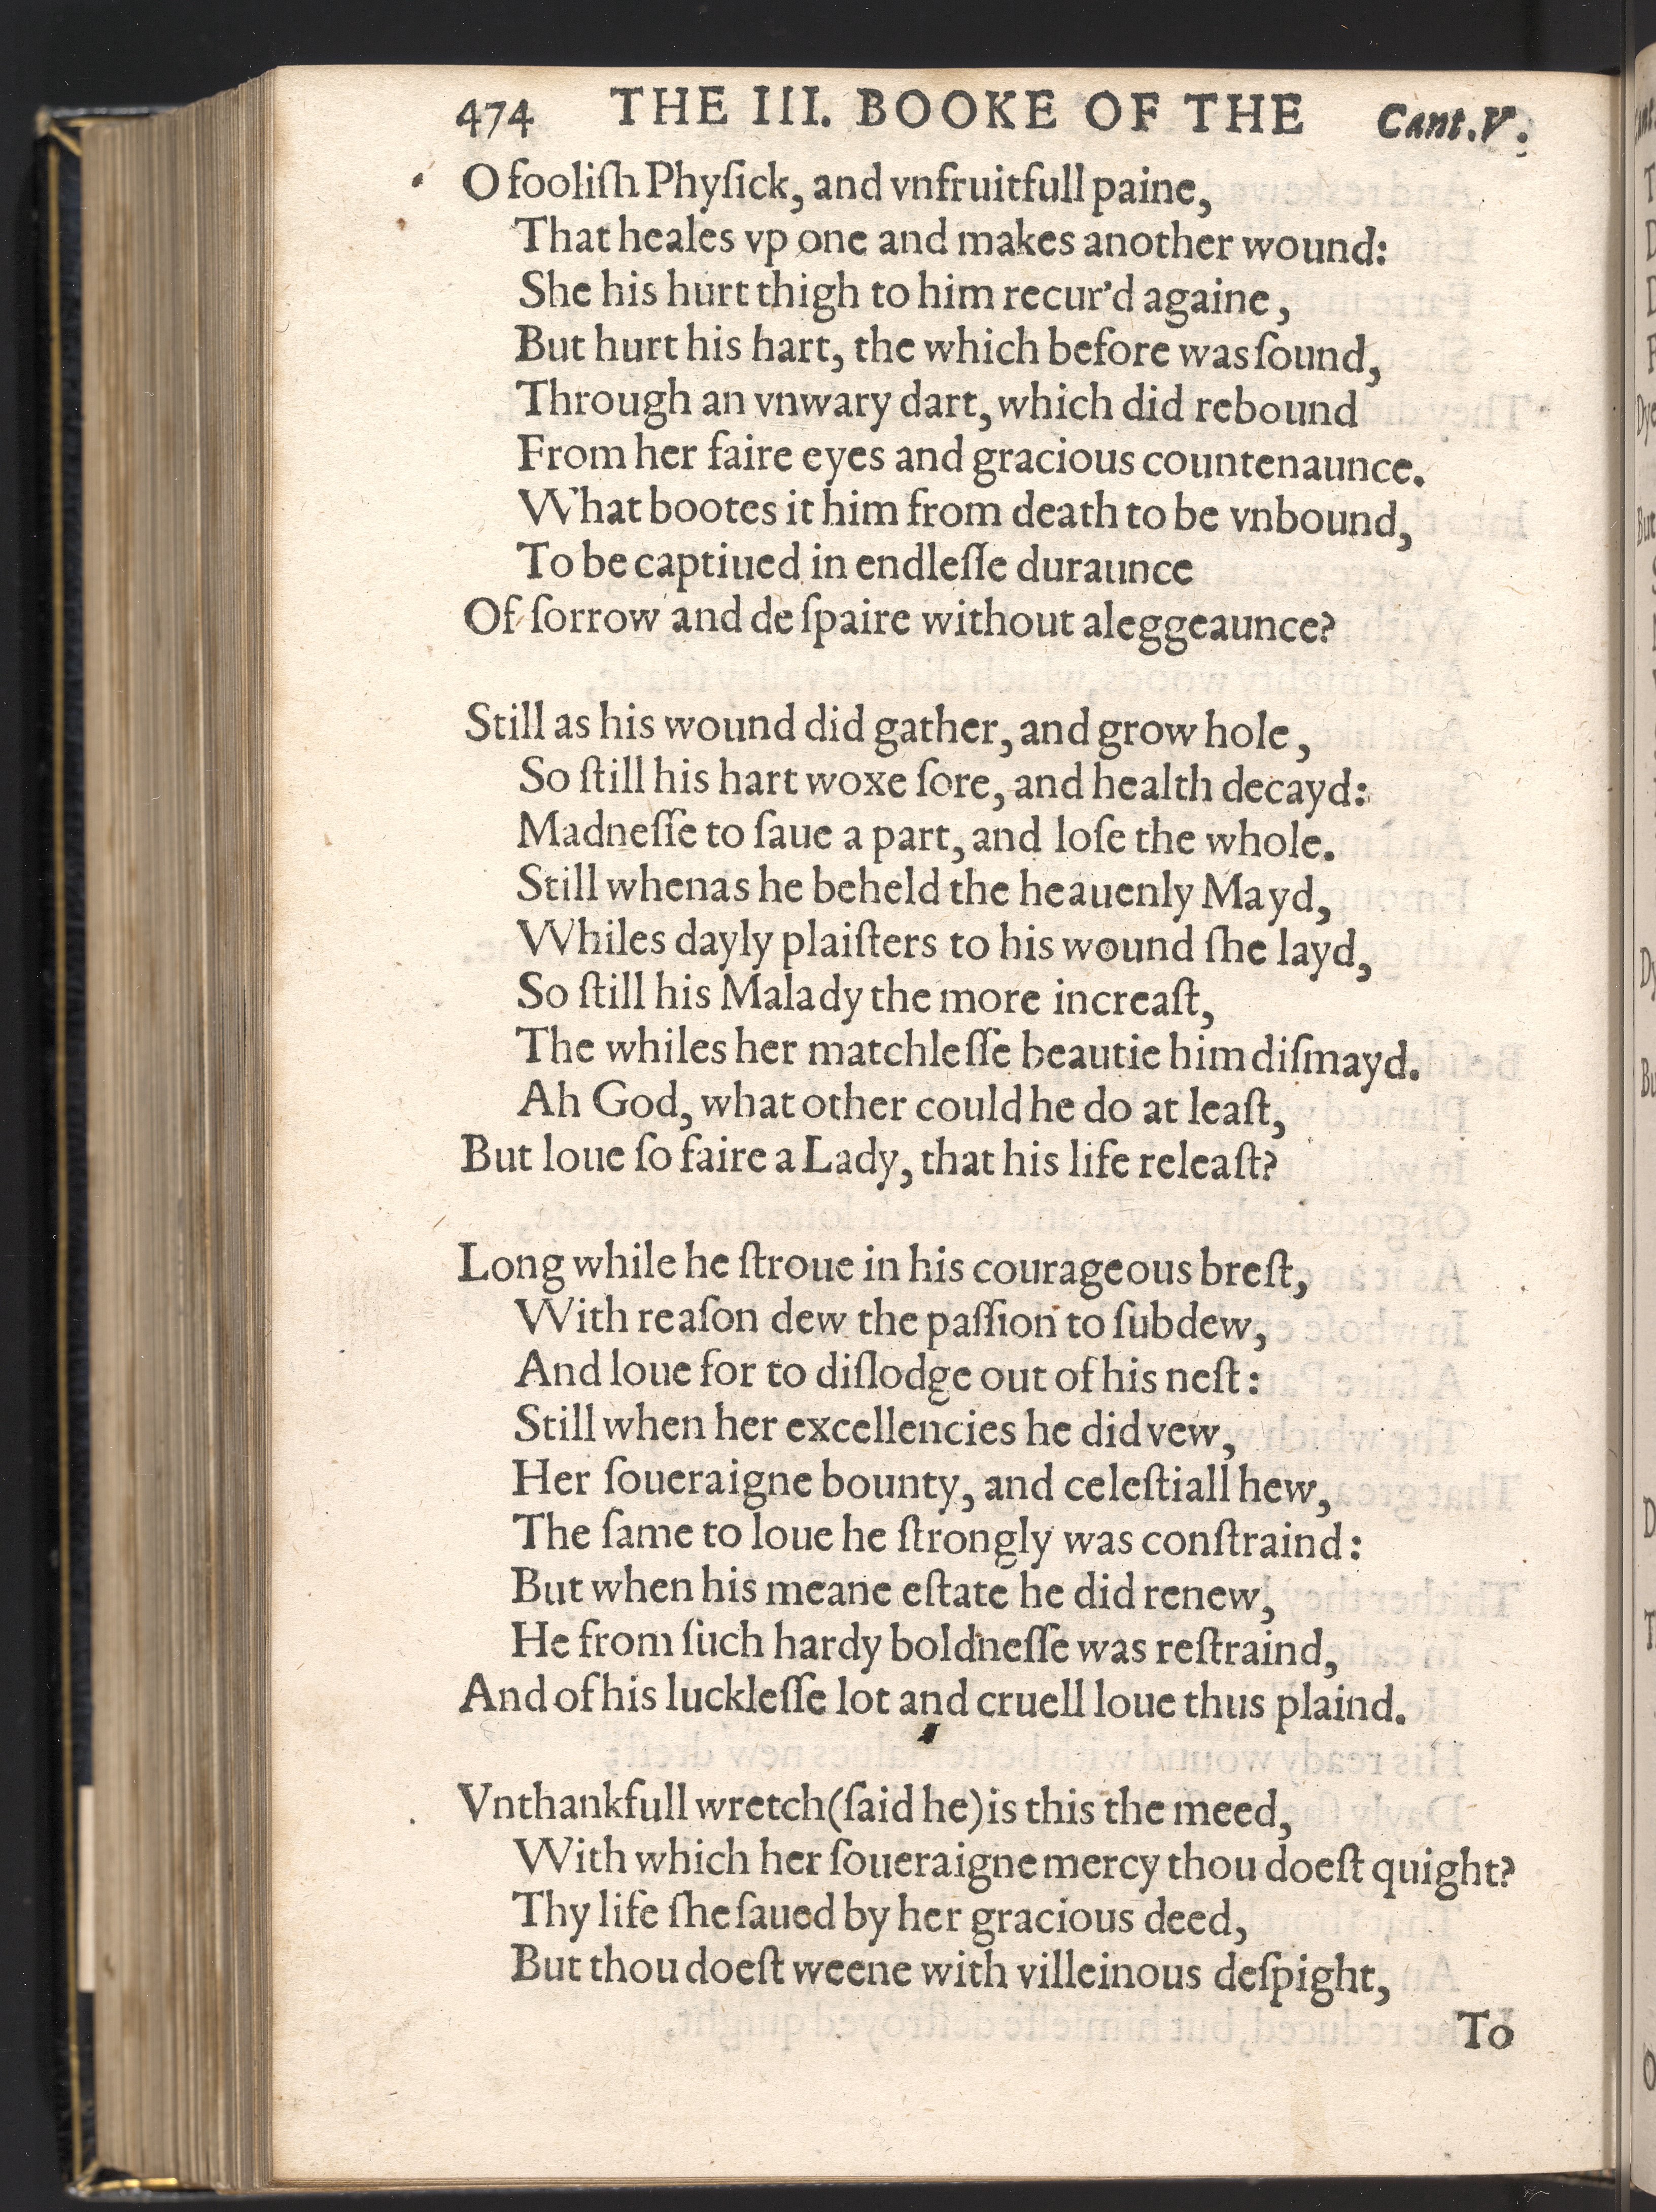 474 THE III. BOOKE OF THE Cant.V.
O fooliſh Phyſick, and vnfruitfull paine,
That heales vp one and makes another wound:
She his hurt thigh to him recur'd againe,
But hurt his hart, the which before was ſound,
Through an vnwary dart, which did rebound
From her faire eyes and gracious countenaunce.
What bootes it him from death to be vnbound,
To be captiued in endleſſe duraunce
Of ſorrow and deſpaire without aleggeaunce?
Still as his wound did gather, and grow hole,
So ſtill his hart woxe ſore, and health decayd:
Madneſſe to ſaue a part, and loſe the whole.
Still whenas he beheld the heauenly Mayd,
Whiles dayly plaiſters to his wound ſhe layd,
So ſtill his Malady the more increaſt,
The whiles her matchleſſe beautie him diſmayd.
Ah God, what other could he do at leaſt,
But loue ſo faire a Lady, that his life releaſt?
Long while he ſtroue in his courageous breſt,
With reaſon dew the paſſion to ſubdew,
And loue for to diſlodge out of his neſt:
Still when her excellencies he did vew,
Her ſoueraigne bounty, and celeſtiall hew,
The ſame to loue he ſtrongly was conſtraind:
But when his meane eſtate he did renew,
He from ſuch hardy boldneſſe was reſtraind,
And of his luckleſſe lot and cruell loue thus plaind.
Vnthankfull wretch (ſaid he) is this the meed,
With which her ſoueraigne mercy thou doeſt quight?
Thy life ſhe ſaued by her gracious deed,
But thou doeſt weene with villeinous deſpight,
To